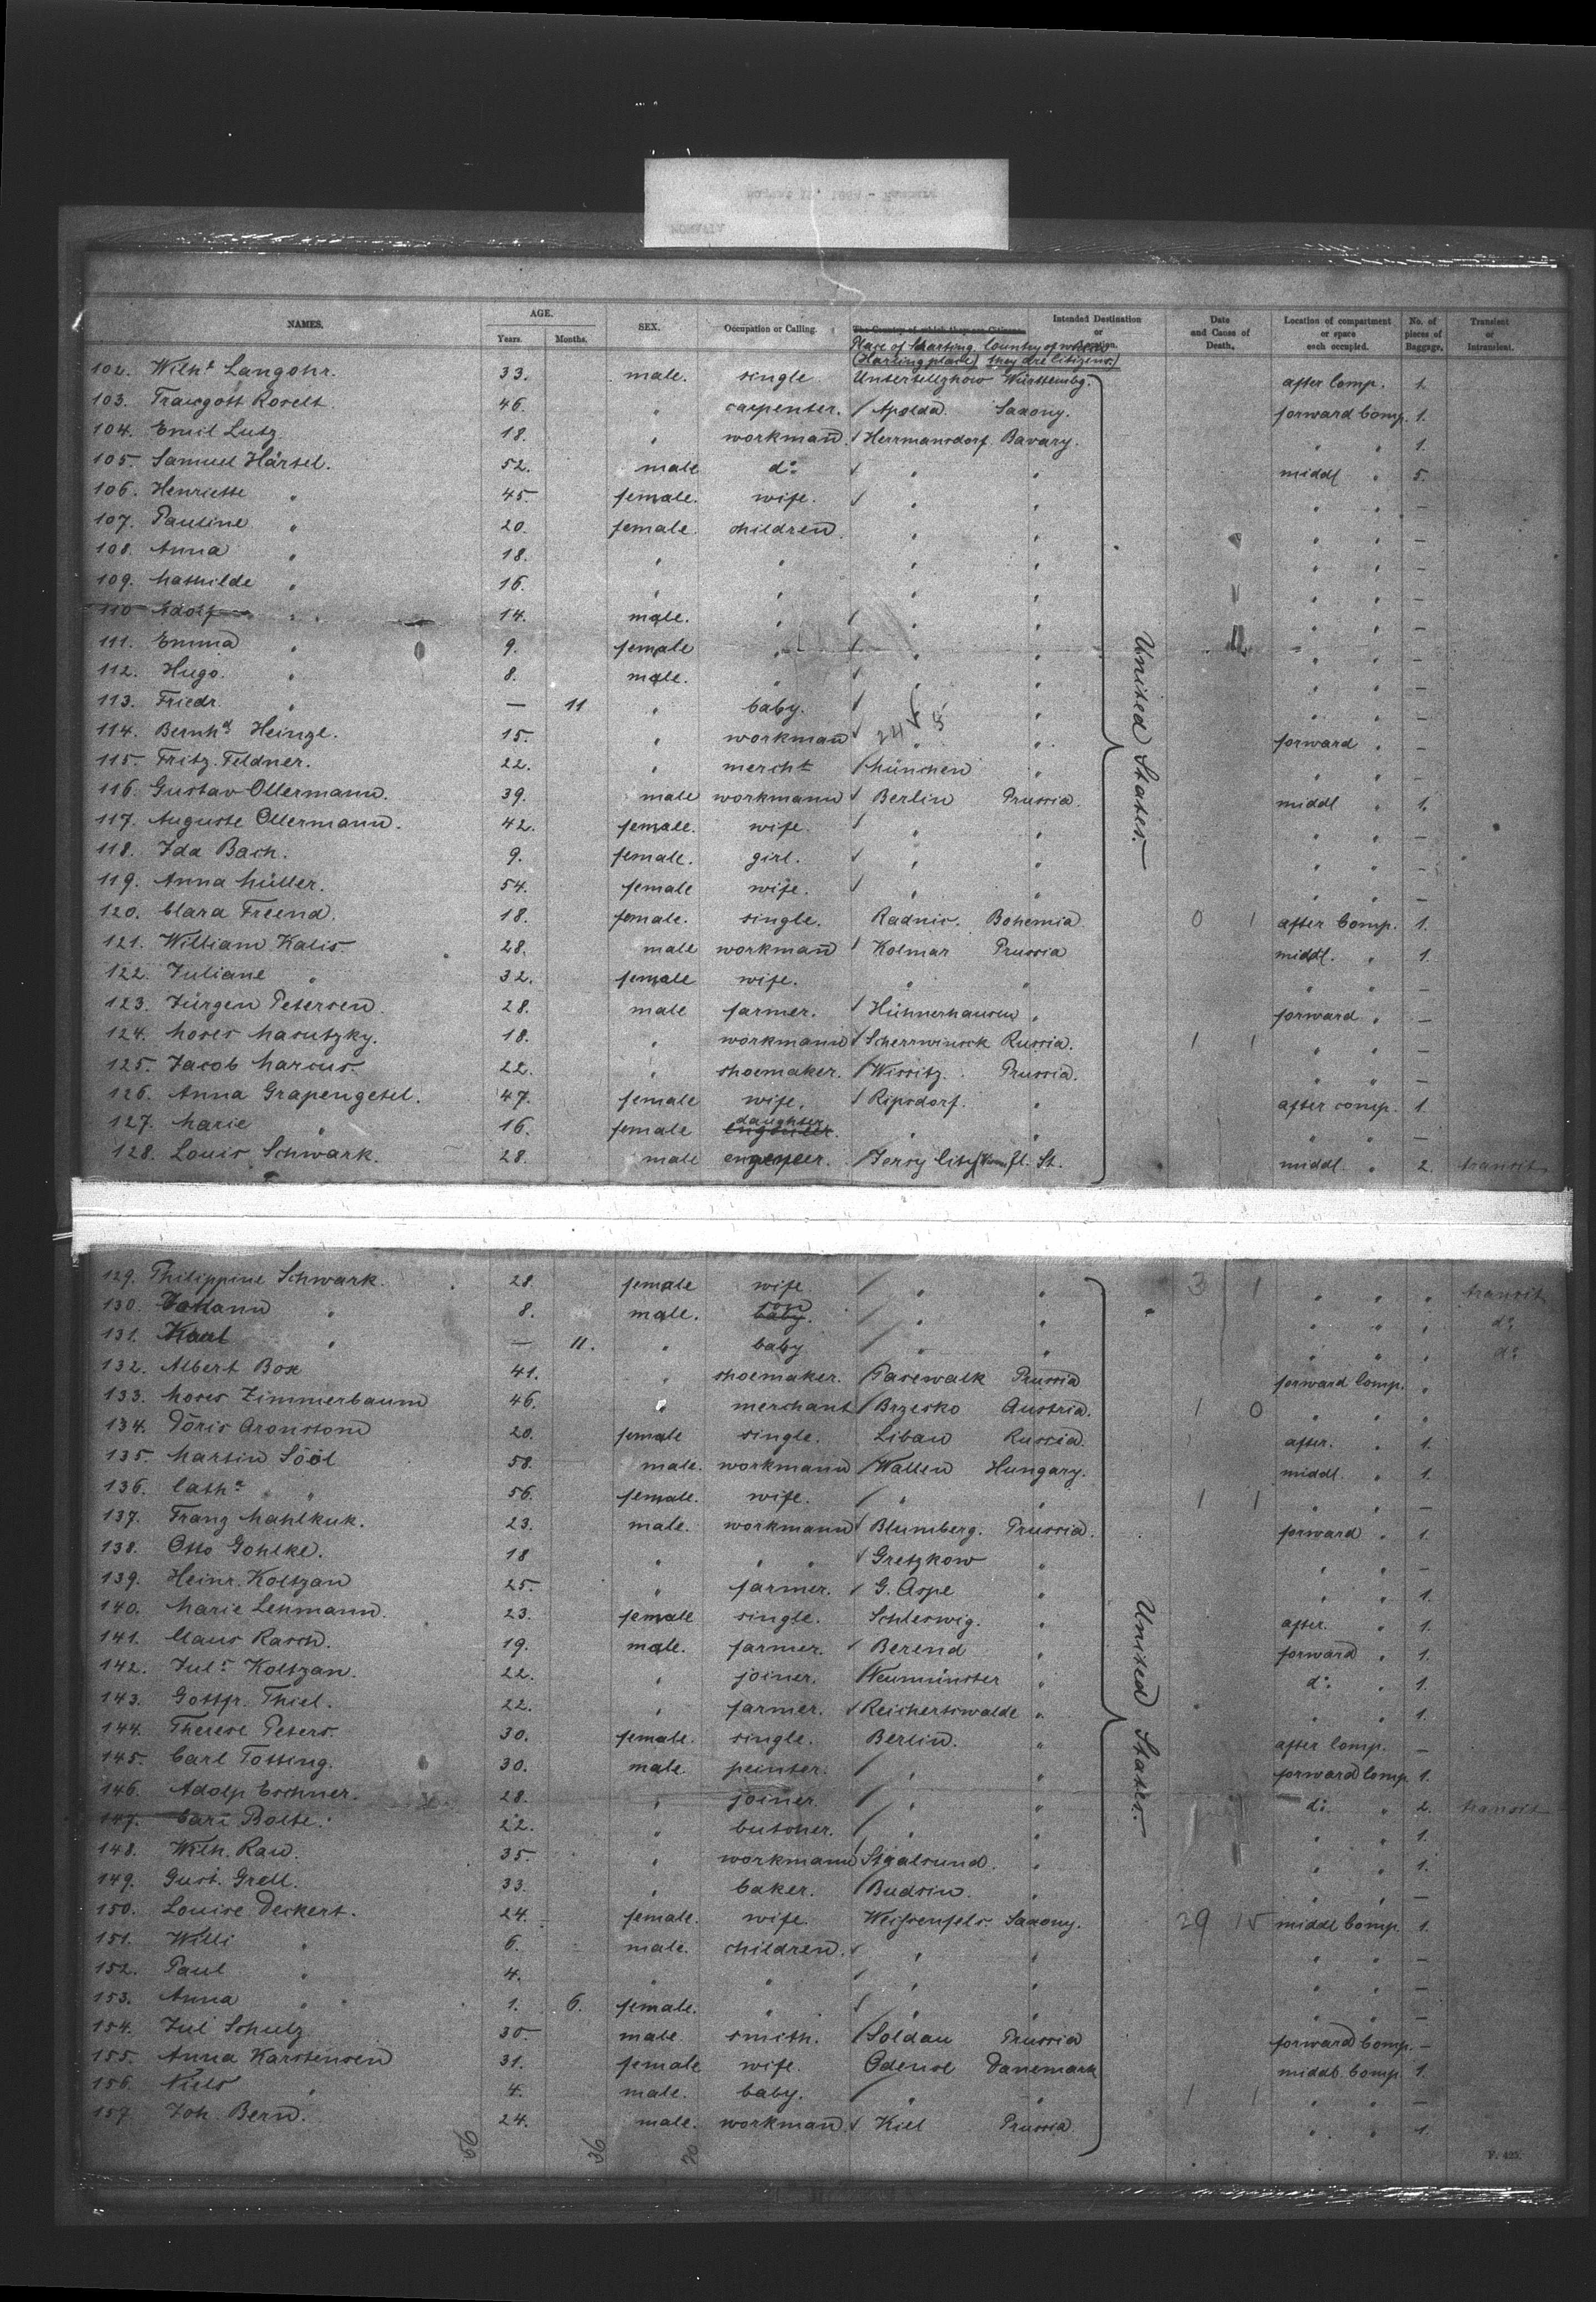 NAMES. AGE. Years. Months. SEX. Occupation or Calling. The Country of which they are Citizens. Intended Destination or Date and Cause of Death. Location of compartment or space each occupied. No. of pieces of Baggage. Transient or Intransient.
Place of Starting (Starting place) Country of which they are Citizens.)
102. Wilh. Langohr. 33. male. single Württembg. after Comp. 1.
103. Traugott Roselt. 46. " carpenter. Apolda. Saxony. forward Comp. 1.
104. Emil Lutz. 18. " workman. Herrmansdorf Bavary. " " 1.
105. Samuel Härtel. 52. male do. " " middl " 5.
106. Henriette " 45. female. wife. " " " " —
107. Pauline " 20. female. children. " " " " —
108. Anna " 18. " " " " " " —
109. Mathilde " 16. " " " " " " —
110 Adolf " 14. male. " " " " " —
111. Emma " 9. female " " " " " —
112. Hugo. " 8. male. " " " " " —
113. Friedr. " — 11 " baby. " " " " —
114. Bernhd. Heinzl. 15. " workman " " forward " —
115. Fritz Feldner. 22. " mercht München " " " —
116. Gustav Ollermann. 39. male workmann Berlin Prussia. middl " 1.
117. Auguste Ollermann. 42. female. wife. " " " " —
118. Ida Bach. 9. female. girl. " " " " —
119. Anna Müller. 54. female wife. " " " " —
120. Clara Freend. 18. female. single. Radnic. Bohemia 0 1 after Comp. 1.
121. William Kalis 28. male workman Kolmar Prussia middl. " 1.
122. Juliane " 32. female wife. " " " " —
123. Jürgen Petersen. 28. male farmer. Hühnerhausen " forward " —
124. Moses Masutzky. 18. " workmann Russia. 1 1 " " —
125. Jacob Marcus. 22. " shoemaker. Wissitz. Prussia. " " —
126. Anna Grapengetel. 47. female wife. Ripsdorf. " after comp. 1.
127. Marie " 16. female daughter " " " " —
128. Louis Schwark. 28. male engeneer. Jersy City St. middl. " 2. transit
United States.
129. Philippine Schwark. 28. female wife " " 3 1 " " " transit
130. Johann " 8. male. son baby. " " " " " do.
131. Karl " — 11. " baby " " " " " do.
132. Albert Box 41. " shoemaker. Pasewalk Prussia forward Comp. "
133. Moses Zimmerbaum 46. " merchant Brzesko Austria. 1 0 " " "
134. Doris Aronstom 20. female single. Libau Russia. after. " 1.
135. Martin Sööl 58. male. workmann Wallen Hungary. middl. " 1.
136. Cath. " 56. female. wife. " " 1 1 " " —
137. Franz Mahlkuk. 23. male. workmann Blumberg. Prussia. forward " 1.
138. Otto Gohlke. 18 " " " Gretzkow " " " —
139. Heinr. Koltzan 25. " farmer. G. Aspe " " " 1.
140. Marie Lehmann. 23. female single. Schleswig. " after. " 1.
141. Claus Rasch. 19. male. farmer. Berend " forward " 1.
142. Juls. Koltzan. 22. " joiner. Neumünster " do. " 1.
143. Gottfr. Thiel. 22. " farmer. Reichertswalde " " " 1.
144. Therese Peters. 30. female. single. Berlin. " after Comp. —
145. Carl Tossing. 30. male. peinter. " " forward Comp. 1.
146. Adolp Eschner. 28. " joiner " " do. " 2. transit
147. Carl Bolte. 22. " butcher. " " " " 1.
148. Wilh. Rau. 35. " workmann Stralsund. " " " 1.
149. Gust. Grell. 33. " baker. Budsin. " " " —
150. Louise Deckert. 24. female. wife. Weissenfels Saxony. 29 15 middl Comp. 1.
151. Willi " 6. male. children. " " " " —
152. Paul " 4. " " " " " " —
153. Anna " 1. 6. female. " " " " " —
154. Jul Schulz 30 male smith. Soldau Prussia forward Comp. —
155. Anna Karstensen 31. female wife. Odense Danemark middl. Comp. 1.
156. Niels " 4. male. baby. " " 1 1 " " —
157 Joh. Bern. 24. male. workman. Kiel Prussia " " 1.
United States.
F. 425.